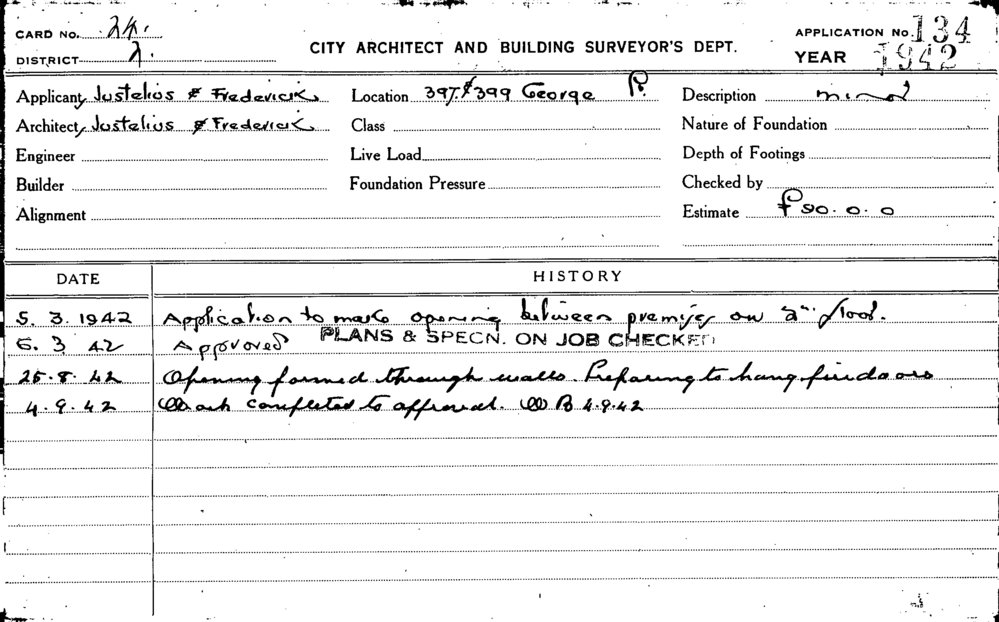 CARD No. 24.
DISTRICT 2.
CITY ARCHITECT AND BUILDING SURVEYOR'S DEPT.
APPLICATION No 134
YEAR 1942
Applicant, Justelius & Frederick Location 397 & 399 George Description minor
Architect, Justelius & Frederick Class Nature of Foundation
Engineer Live Load Depth of Footings
Builder Foundation Pressure Checked by
Alignment Estimate £90.0.0
DATE HISTORY
5. 3. 1942 Application to make opening between premises on 2nd floor.
6. 3 42 Approved PLANS & SPECN. ON JOB CHECKED
25.8.42 Opening formed through walls. Preparing to hang fire doors
4.9.42 Work completed to approval. WB 4.9.42